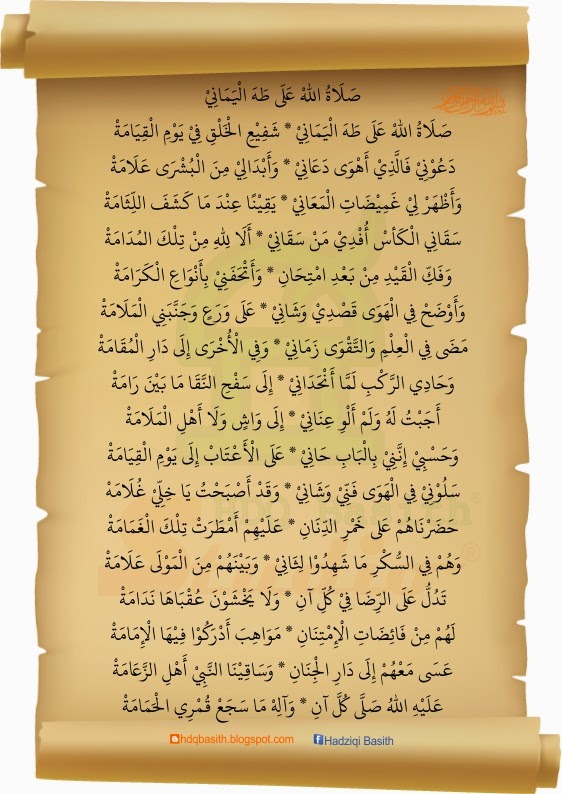 صَلَاةُ اللهْ عَلَى طَهَ الْيَمَانِيْ
صَلَاةُ اللهْ عَلَى طَهَ الْيَمَانِيْ * شَفِيْعِ الْخَلْقِ فِيْ يَوْمِ الْقِيَامَةْ
دَعُوْنِيْ فَالَّذِيْ أَهْوَى دَعَانِيْ * وَأَبْدَالِيْ مِنَ الْبُشْرَى عَلَامَةْ
وَأَظْهَرْ لِيْ غَمِيْضَاتِ الْمَعَانِيْ * يَقِيْنًا عِنْدَ مَا كَشَفَ اللِّثَامَةْ
سَقَانِي الْكَأسْ أُفْدِيْ مَنْ سَقَانِيْ * أَلَا لِلهِ مِنْ تِلْكَ الْمُدَامَةْ
وَفَكِّ الْقَيْدِ مِنْ بَعْدِ امْتِحَانِ * وَأَتْحَفَنِيْ بِأَنْوَاعِ الْكَرَامَةْ
وَأَوْضَحْ فِي الْهَوَى قَصْدِيْ وَشَانِيْ * عَلَى وَرَعٍ وَجَنَّبَنِي الْمَلَامَةْ
مَضَى فِي الْعِلْمِ وَالتَّقْوَى زَمَانِيْ * وَفِي الْأُخْرَى إِلَى دَارِ الْمُقَامَةْ
وَحَادِي الرَّكْبِ لَمَّا أَنْحَدَانِيْ * إِلَى سَفْحِ النَّقَا مَا بَيْنَ رَامَةْ
أَجَبْتُ لَهُ وَلَمْ أَلْوِ عِنَانِيْ * إِلَى وَاشٍ وَلَا أَهْلِ الْمَلَامَةْ
وَحَسْبِيْ إِنَّنِيْ بِالْبَابِ حَانِيْ * عَلَى الْأَعْتَابْ إِلَى يَوْمِ الْقِيَامَةْ
سَلُوْنِيْ فِي الْهَوَى فَنِّيْ وَشَانِيْ * وَقَدْ أَصْبَحْتُ يَا خِلِّيْ غُلَامَةْ
حَضَرْنَاهُمْ عَلَى خَمْرِ الدِّنَانِ * عَلَيْهِمْ أَمْطَرَتْ تِلْكَ الْغَمَامَةْ
وَهُمْ فِي السُّكْرِ مَا شَهِدُوْا لِثَانِيْ * وَبَيْنَهُمْ مِنَ الْمَوْلَى عَلَامَةْ
تَدُلُّ عَلَى الرِّضَا فِيْ كُلِّ آنِ * وَلَا يَخْشَوْنَ عُقْبَاهَا نَدَامَةْ
لَهُمْ مِنْ فَائِضَاتِ الْإِمْتِنَانِ * مَوَاهِبَ أَدْرَكُوْا فِيْهَا الْإِمَامَةْ
عَسَى مَعْهُمْ إِلَى دَارِ الْجِنَانِ * وَسَاقِيْنَا النَّبِيْ أَهْلِ الزَّعَامَةْ
عَلَيْهِ اللهُ صَلَّى كُلَّ آنِ * وَآلِهْ مَا سَجَعْ قُمْرِي الْحَمَامَةْ
hdqbasith.blogspot.com Hadziqi Basith